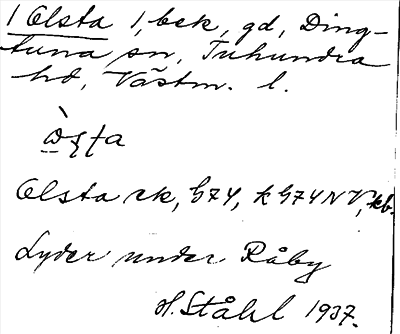 / Olsta /, bek, gd, Ding-
tuna sn, Tuhundra
hd, Västm. l.
Olsta ek, G74, k G74 NV, kb.
Lyder under Råby
H. Ståhl 1937.